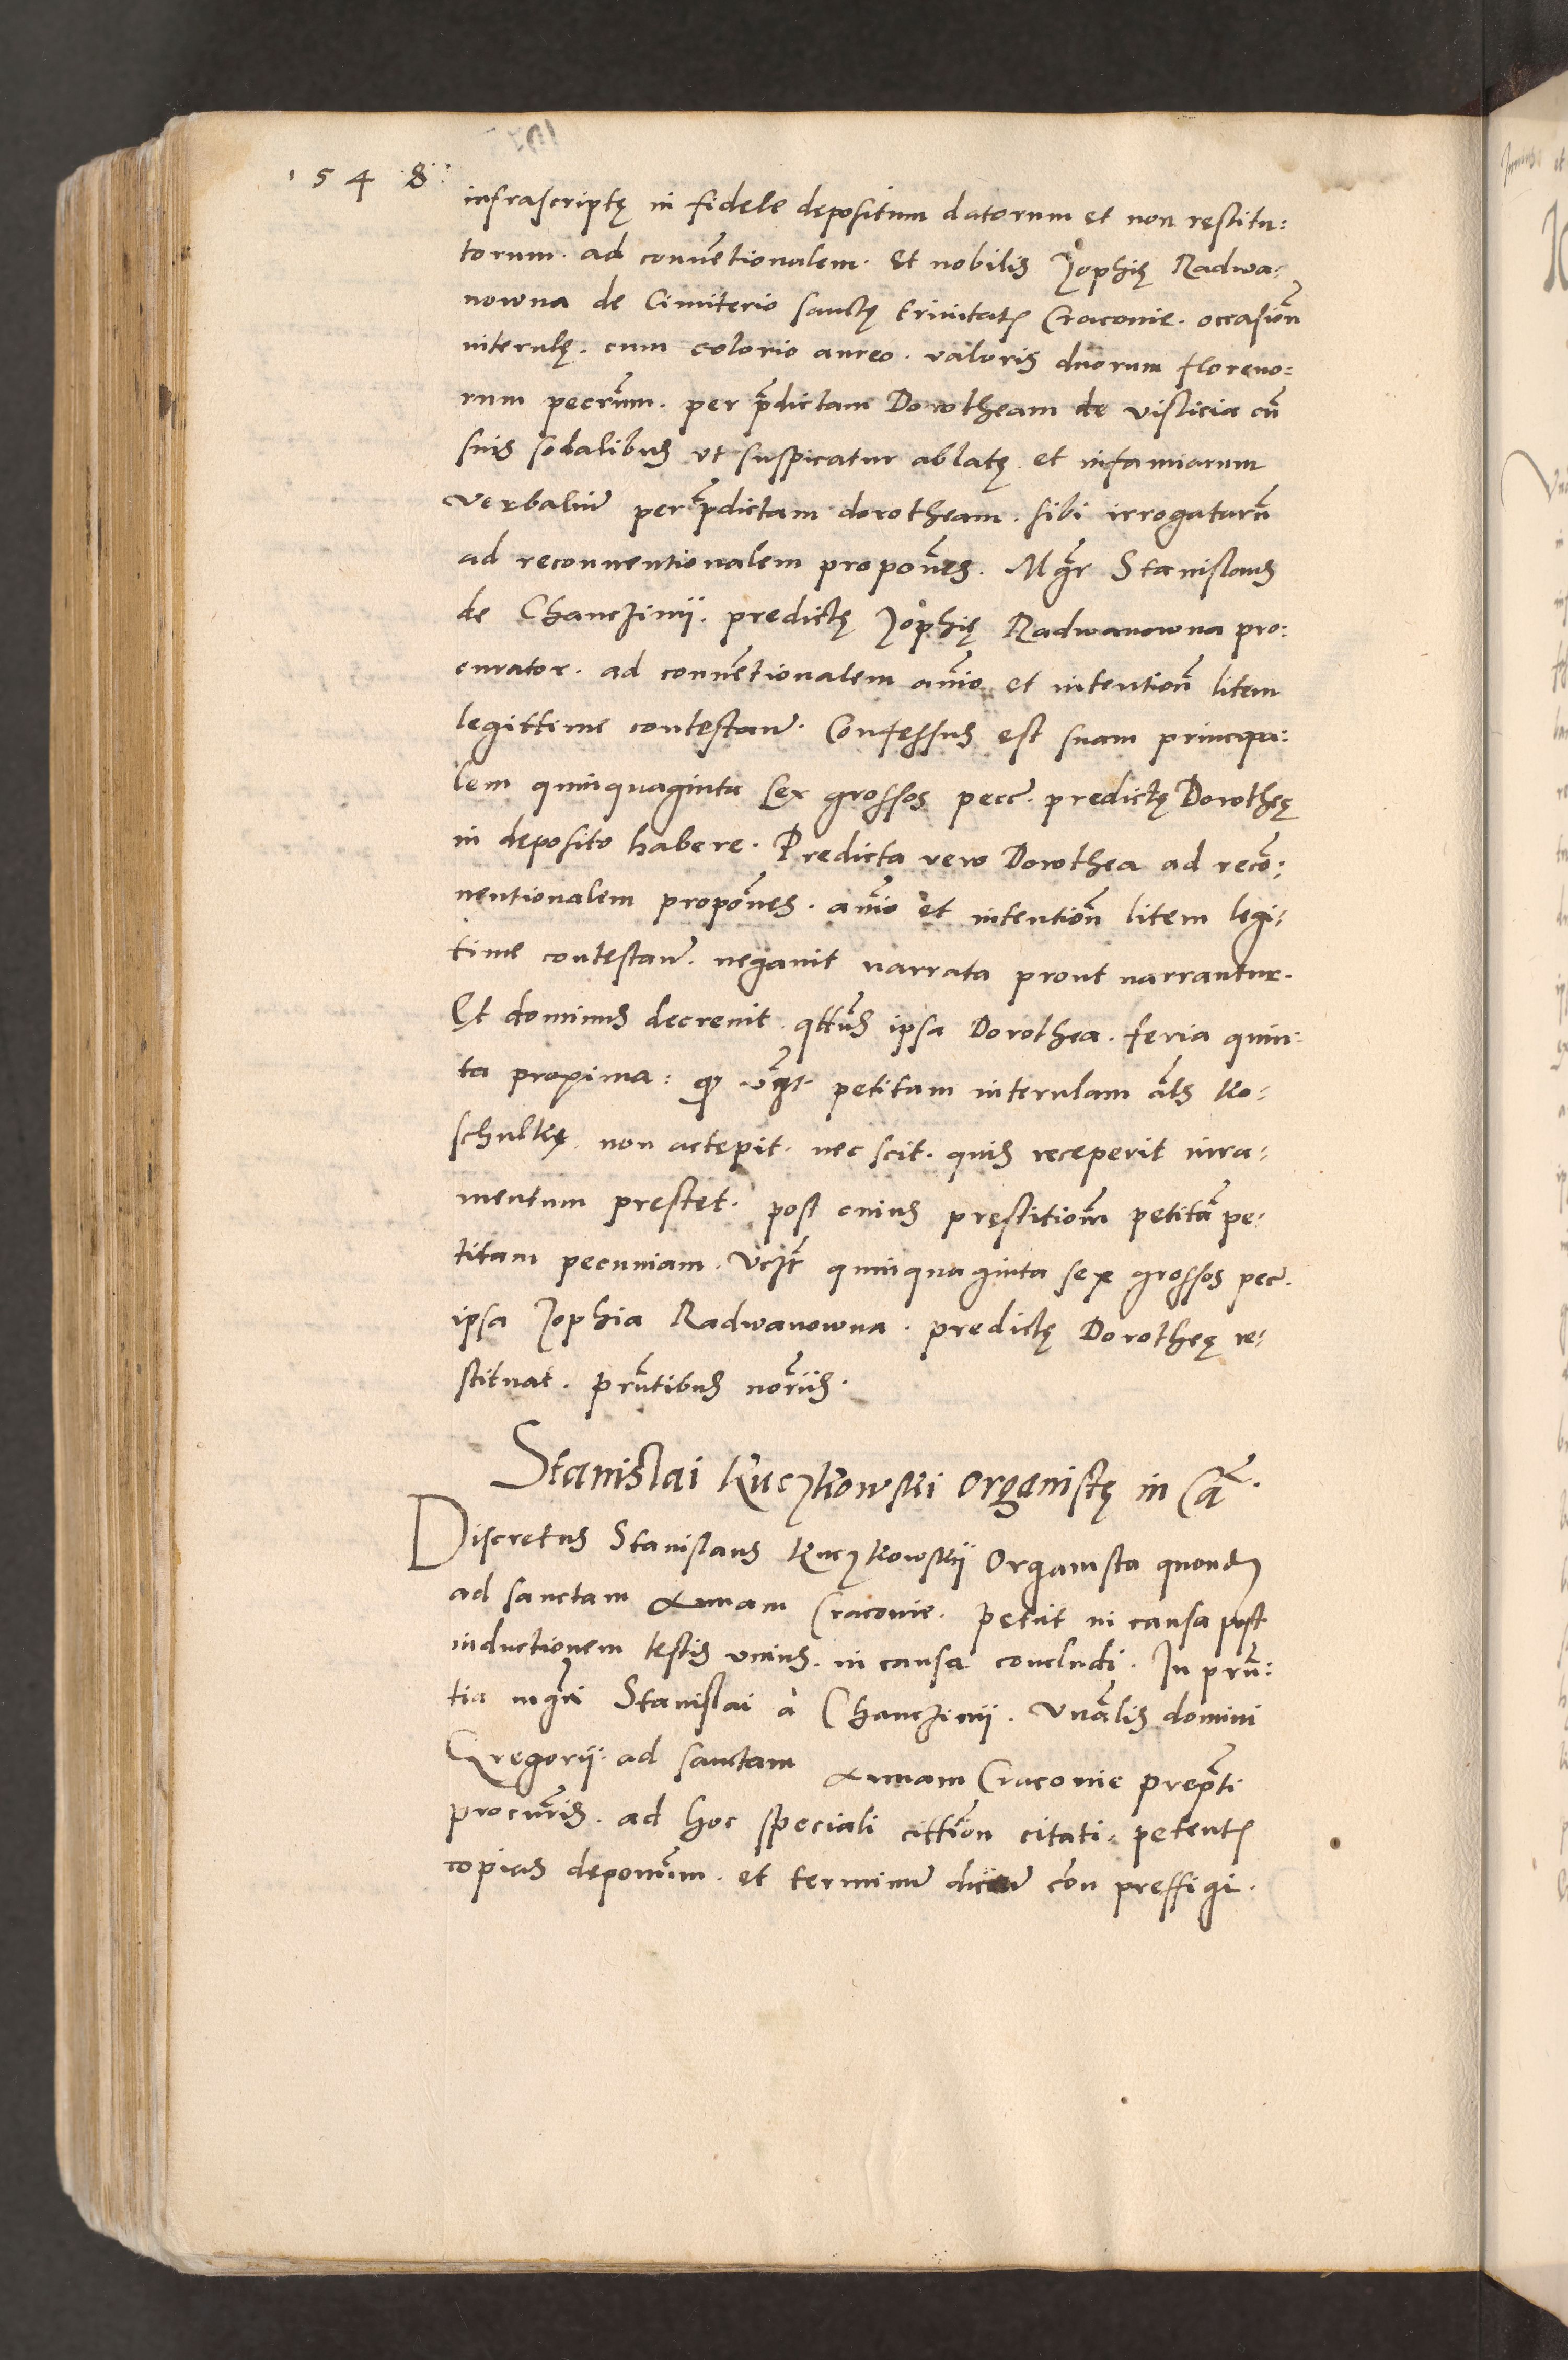 1548
infrascriptę in fidele depositum datorum et non restitu:
torum. ad convētionalem. Et nobilis Zophię Radwa:
nowna de Cimiterio sanctę trinitatis Cracovie. occasiōn
interulę. cum colorio aureo. valoris duorum floreno:
rum pecrūm. per p̄dictam Dorotheam de vislicia cū
suis sodalibus ut suspicatur ablatę et infamiarum
verbaliū per p̄dictam dorotheam. sibi irrogatarū
ad reconventionalem propōnes. Mgr̄ Stanislaus
de Chanczinij. predictę Zophię Radwanowna pro:
curator. ad convētionalem anīo et intentiōn litem
legittime contestan̄. Confessus est suam principa:
lem quinquaginta sex grossos pecc̄. predictę Dorotheę
in deposito habere. Predicta vero Dorothea ad recō:
ventionalem propōnes. anīo et intentiōn litem legi:
time contestan̄. negavit narrata prout narrantur.
Et dominus decrevit qttūs ipsa Dorothea. feria quin:
ta proxima: petitam interulam āls ko:
schulkę non accepit. nec scit. quis receperit iura:
mentum prestet. post cuius pręstitiom̄ petitā pe:
titam pecuniam. Vcz̄t quinquaginta sex grossos pec̄.
ipsa Zophia Radwanowna. predictę Dorotheę re:
stituat. prn̄tibus norīis.
Stanislai Kuczkowski organistę in Cā.
Discretus Stanislaus Kuczkowskij Organista quondam
ad sanctam Annam Cracovie. petiit in causa post
inductionem testis unius. in causa concludi. In prn̄:
tia mgrī Stanislai à Chanczinij. Vnālis domini
Gregorij ad sanctam Annam Cracovie prep̄ti
procurīs. ad hoc speciali cittiōn citati. petentis
copias deponūm. et terminū dicen̄ cōn preffigi.